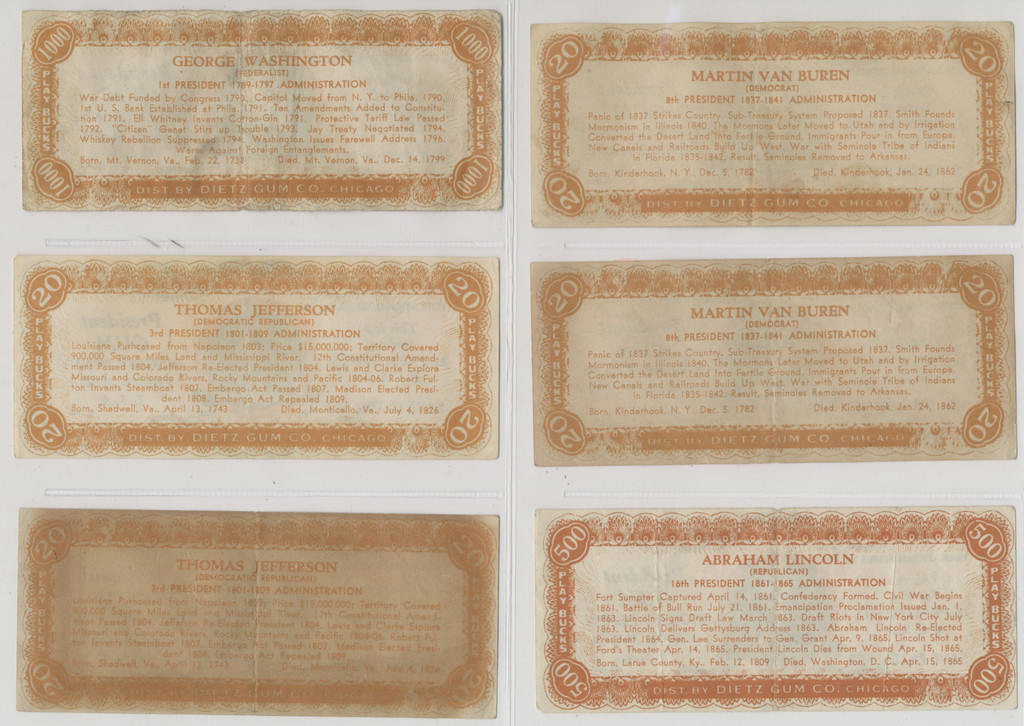 1000
1000
PLAY BUCKS
PLAY BUCKS
GEORGE WASHINGTON
(FEDERALIST)
1st PRESIDENT 1789-1797 ADMINISTRATION
War Debt Funded by Congress 1790. Capitol Moved from N. Y. to Phila. 1790.
1st U. S. Bank Established at Phila. 1791. Ten Amendments Added to Constitu-
tion 1791. Eli Whitney Invents Cotton-Gin 1791. Protective Tariff Law Passed
1792. "Citizen" Genet Stirs up Trouble 1793. Jay Treaty Negotiated 1794.
Whiskey Rebellion Suppressed 1794. Washington Issues Farewell Address 1796.
Warns Against Foreign Entanglements.
Born, Mt. Vernon, Va., Feb. 22, 1732 Died, Mt. Vernon, Va., Dec. 14, 1799
1000
1000
DIST. BY DIETZ GUM CO. CHICAGO
20
20
PLAY BUCKS
PLAY BUCKS
THOMAS JEFFERSON
(DEMOCRATIC REPUBLICAN)
3rd PRESIDENT 1801-1809 ADMINISTRATION
Louisiana Purhcased from Napoleon 1803; Price $15,000,000; Territory Covered
900,000 Square Miles Land and Mississippi River. 12th Constitutional Amend-
ment Passed 1804. Jefferson Re-Elected President 1804. Lewis and Clarke Explore
Missouri and Colorado Rivers, Rocky Mountains and Pacific 1804-06. Robert Ful-
ton Invents Steamboat 1807. Embargo Act Passed 1807. Madison Elected Presi-
dent 1808. Embargo Act Repealed 1809.
Born, Shadwell, Va., April 13, 1743 Died, Monticello, Va., July 4, 1826
20
20
DIST. BY DIETZ GUM CO. CHICAGO
20
20
PLAY BUCKS
PLAY BUCKS
THOMAS JEFFERSON
(DEMOCRATIC REPUBLICAN)
3rd PRESIDENT 1801-1809 ADMINISTRATION
Louisiana Purhcased from Napoleon 1803; Price $15,000,000; Territory Covered
900,000 Square Miles Land and Mississippi River. 12th Constitutional Amend-
ment Passed 1804. Jefferson Re-Elected President 1804. Lewis and Clarke Explore
Missouri and Colorado Rivers, Rocky Mountains and Pacific 1804-06. Robert Ful-
ton Invents Steamboat 1807. Embargo Act Passed 1807. Madison Elected Presi-
dent 1808. Embargo Act Repealed 1809.
Born, Shadwell, Va., April 13, 1743 Died, Monticello, Va., July 4, 1826
20
20
DIST. BY DIETZ GUM CO. CHICAGO
20
20
PLAY BUCKS
PLAY BUCKS
MARTIN VAN BUREN
(DEMOCRAT)
8th PRESIDENT 1837-1841 ADMINISTRATION
Panic of 1837 Strikes Country. Sub-Treasury System Proposed 1837. Smith Founds
Mormonism in Illinois 1840. The Mormons Later Moved to Utah and by Irrigation
Converted the Desert Land Into Fertile Ground. Immigrants Pour in from Europe.
New Canals and Railroads Build Up West. War with Seminole Tribe of Indians
in Florida 1835-1842. Result, Seminoles Removed to Arkansas.
Born, Kinderhook, N. Y., Dec. 5, 1782 Died, Kinderhook, Jan. 24, 1862
20
20
DIST. BY DIETZ GUM CO. CHICAGO
20
20
PLAY BUCKS
PLAY BUCKS
MARTIN VAN BUREN
(DEMOCRAT)
8th PRESIDENT 1837-1841 ADMINISTRATION
Panic of 1837 Strikes Country. Sub-Treasury System Proposed 1837. Smith Founds
Mormonism in Illinois 1840. The Mormons Later Moved to Utah and by Irrigation
Converted the Desert Land Into Fertile Ground. Immigrants Pour in from Europe.
New Canals and Railroads Build Up West. War with Seminole Tribe of Indians
in Florida 1835-1842. Result, Seminoles Removed to Arkansas.
Born, Kinderhook, N. Y., Dec. 5, 1782 Died, Kinderhook, Jan. 24, 1862
20
20
DIST. BY DIETZ GUM CO. CHICAGO
500
500
PLAY BUCKS
PLAY BUCKS
ABRAHAM LINCOLN
(REPUBLICAN)
16th PRESIDENT 1861-1865 ADMINISTRATION
Fort Sumpter Captured April 14, 1861. Confederacy Formed. Civil War Begins
1861. Battle of Bull Run July 21, 1861. Emancipation Proclamation Issued Jan. 1,
1863. Lincoln Signs Draft Law March 1863. Draft Riots in New York City July
1863. Lincoln Delivers Gettysburg Address 1863. Abraham Lincoln Re-Elected
President 1864. Gen. Lee Surrenders to Gen. Grant Apr. 9, 1865. Lincoln Shot at
Ford's Theater Apr. 14, 1865. President Lincoln Dies from Wound Apr. 15, 1865.
Born, Larue County, Ky., Feb. 12, 1809 Died, Washington, D. C., Apr. 15, 1865
500
500
DIST. BY DIETZ GUM CO. CHICAGO